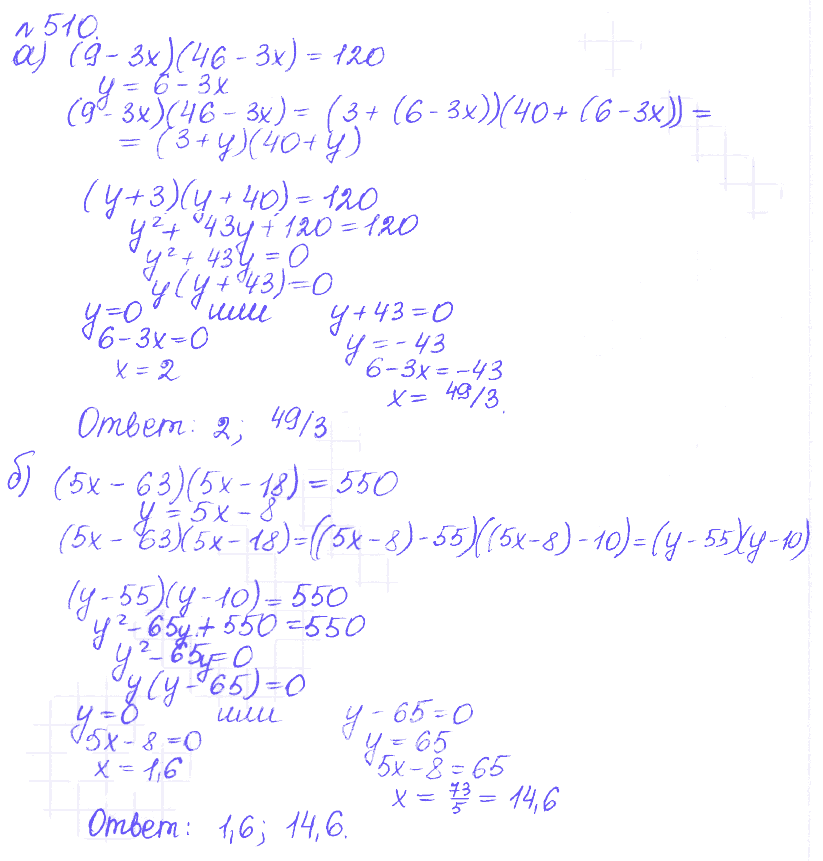 № 510.
а) (9 - 3x)(46 - 3x) = 120
y = 6 - 3x
(9 - 3x)(46 - 3x) = (3 + (6 - 3x))(40 + (6 - 3x)) =
= (3 + y)(40 + y)
(y + 3)(y + 40) = 120
y² + 43y + 120 = 120
y² + 43y = 0
y(y + 43) = 0
y = 0 или y + 43 = 0
6 - 3x = 0 y = -43
x = 2 6 - 3x = -43
x = 49/3.
Ответ: 2; 49/3
б) (5x - 63)(5x - 18) = 550
y = 5x - 8
(5x - 63)(5x - 18) = ((5x - 8) - 55)((5x - 8) - 10) = (y - 55)(y - 10)
(y - 55)(y - 10) = 550
y² - 65y + 550 = 550
y² - 65y = 0
y(y - 65) = 0
y = 0 или y - 65 = 0
5x - 8 = 0 y = 65
x = 1,6 5x - 8 = 65
x = 73/5 = 14,6
Ответ: 1,6; 14,6.